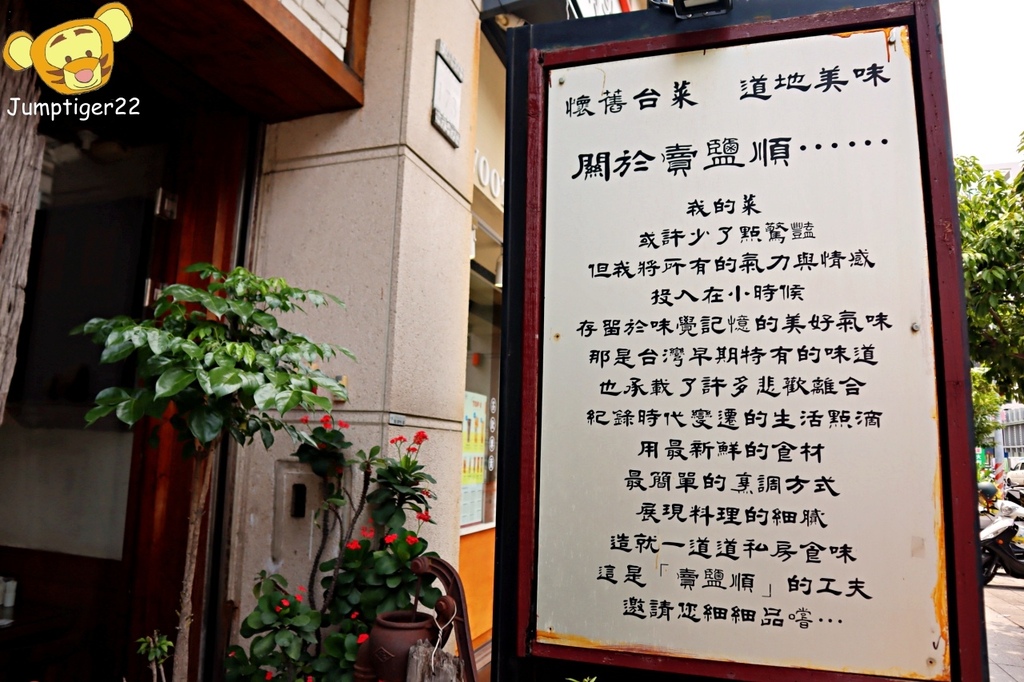 Jumptiger22
懷舊台菜 道地美味
關於賣鹽順⋯⋯
我的菜
或許少了點驚豔
但我將所有的氣力與情感
投入在小時候
存留於味覺記憶的美好氣味
那是台灣早期特有的味道
也承載了許多悲歡離合
紀錄時代變遷的生活點滴
用最新鮮的食材
最簡單的烹調方式
展現料理的細膩
造就一道道私房食味
這是「賣鹽順」的工夫
邀請您細細品嚐⋯